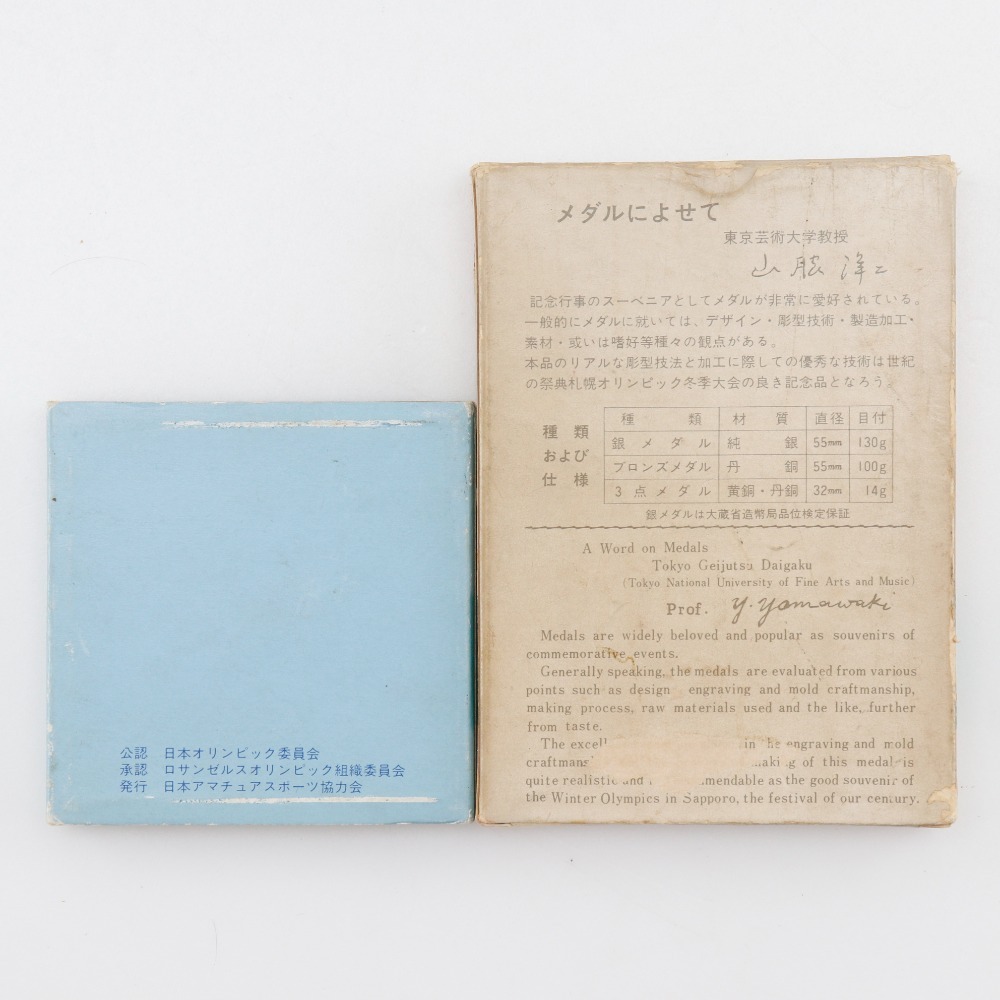 公認 日本オリンピック委員会
承認 ロサンゼルスオリンピック組織委員会
発行 日本アマチュアスポーツ協力会
メダルによせて
東京芸術大学教授
山脇洋二
記念行事のスーベニアとしてメダルが非常に愛好されている。
一般的にメダルに就いては、デザイン・彫型技術・製造加工・
素材・或いは嗜好等種々の観点がある。
本品のリアルな彫型技法と加工に際しての優秀な技術は世紀
の祭典札幌オリンピック冬季大会の良き記念品となろう。
種類および仕様
種類 材質 直径 目付
銀メダル 純銀 55mm 130g
ブロンズメダル 丹銅 55mm 100g
3点メダル 黄銅・丹銅 32mm 14g
銀メダルは大蔵省造幣局品位検定保証
A Word on Medals
Tokyo Geijutsu Daigaku
(Tokyo National University of Fine Arts and Music)
Prof. Y. Yamawaki
Medals are widely beloved and popular as souvenirs of
commemorative events.
Generally speaking, the medals are evaluated from various
points such as design engraving and mold craftmanship,
making process, raw materials used and the like, further
from taste.
The in engraving and mold
of this medal is
quite realistic and as the good souvenir of
the Winter Olympics in Sapporo, the festival of our century.